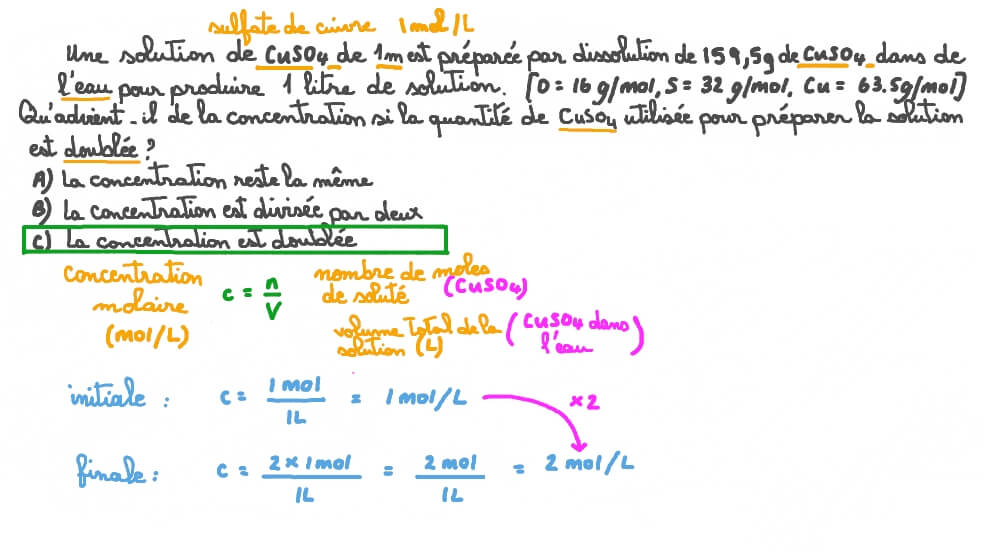 sulfate de cuivre 1 mol/L
Une solution de CuSO4 de 1m est préparée par dissolution de 159,5g de CuSO4 dans de
l'eau pour produire 1 litre de solution. [O = 16 g/mol, S = 32 g/mol, Cu = 63.5g/mol]
Qu'advient-il de la concentration si la quantité de CuSO4 utilisée pour préparer la solution
est doublée ?
A) La concentration reste la même
B) La concentration est divisée par deux
C) La concentration est doublée
concentration molaire (mol/L)
c = n/V
nombre de moles de soluté (CuSO4)
volume total de la solution (L) (CuSO4 dans l'eau)
initiale : c = 1 mol/1L = 1 mol/L ×2
finale : c = 2 × 1 mol/1L = 2 mol/1L = 2 mol/L